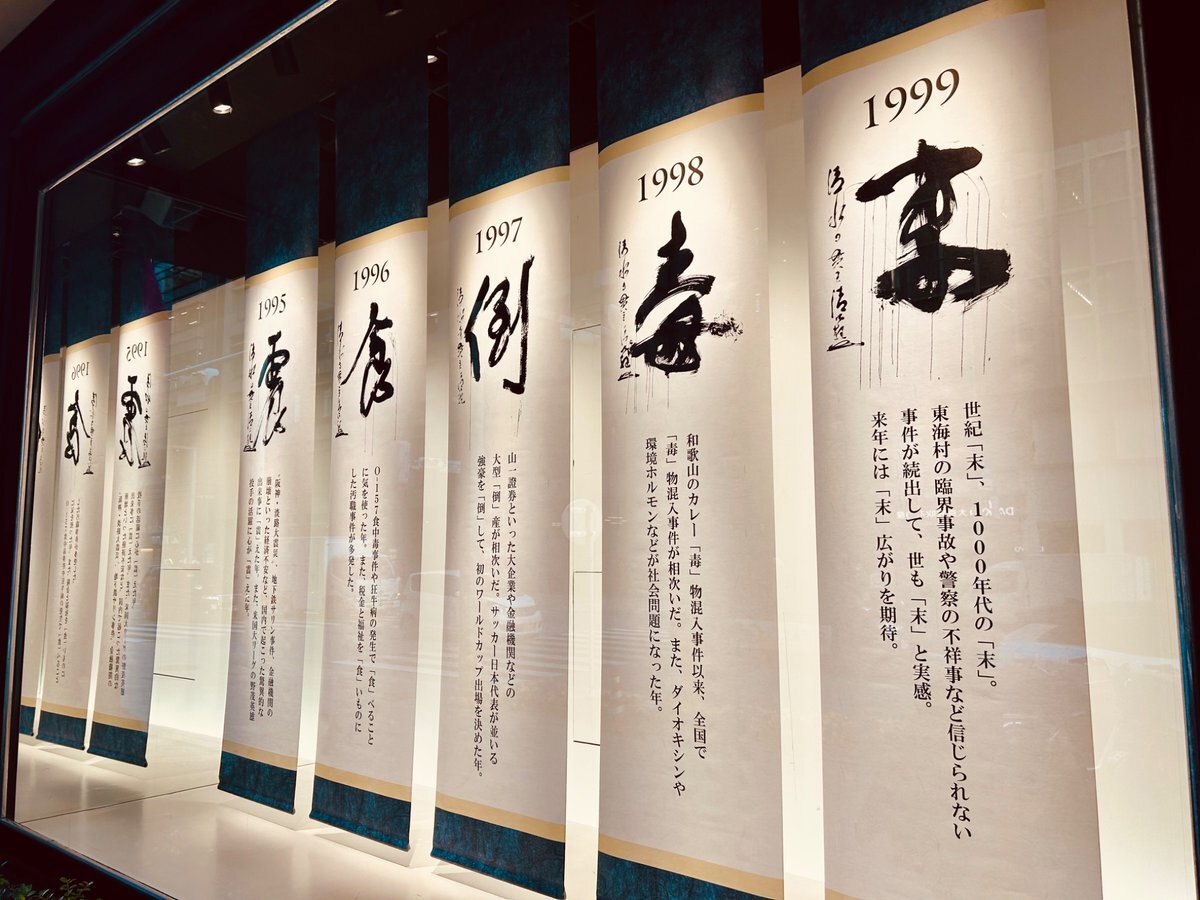 1995
震
阪神・淡路大震災、地下鉄サリン事件、金融機関の
崩壊といった経済不安など、国内で起こった驚異的な
出来事に「震」えた年。また、米国大リーグの野茂英雄
投手の活躍に心が「震」えた年。
1996
食
O-157食中毒事件や狂牛病の発生で「食」べること
に気を使った年。また、税金と福祉を「食」いものに
した汚職事件が多発した。
1997
倒
山一證券といった大企業や金融機関などの
大型「倒」産が相次いだ。サッカー日本代表が並いる
強豪を「倒」して、初のワールドカップ出場を決めた年。
1998
毒
和歌山のカレー「毒」物混入事件以来、全国で
「毒」物混入事件が相次いだ。また、ダイオキシンや
環境ホルモンなどが社会問題になった年。
1999
末
世紀「末」、1000年代の「末」。
東海村の臨界事故や警察の不祥事など信じられない
事件が続出して、世も「末」と実感。
来年には「末」広がりを期待。